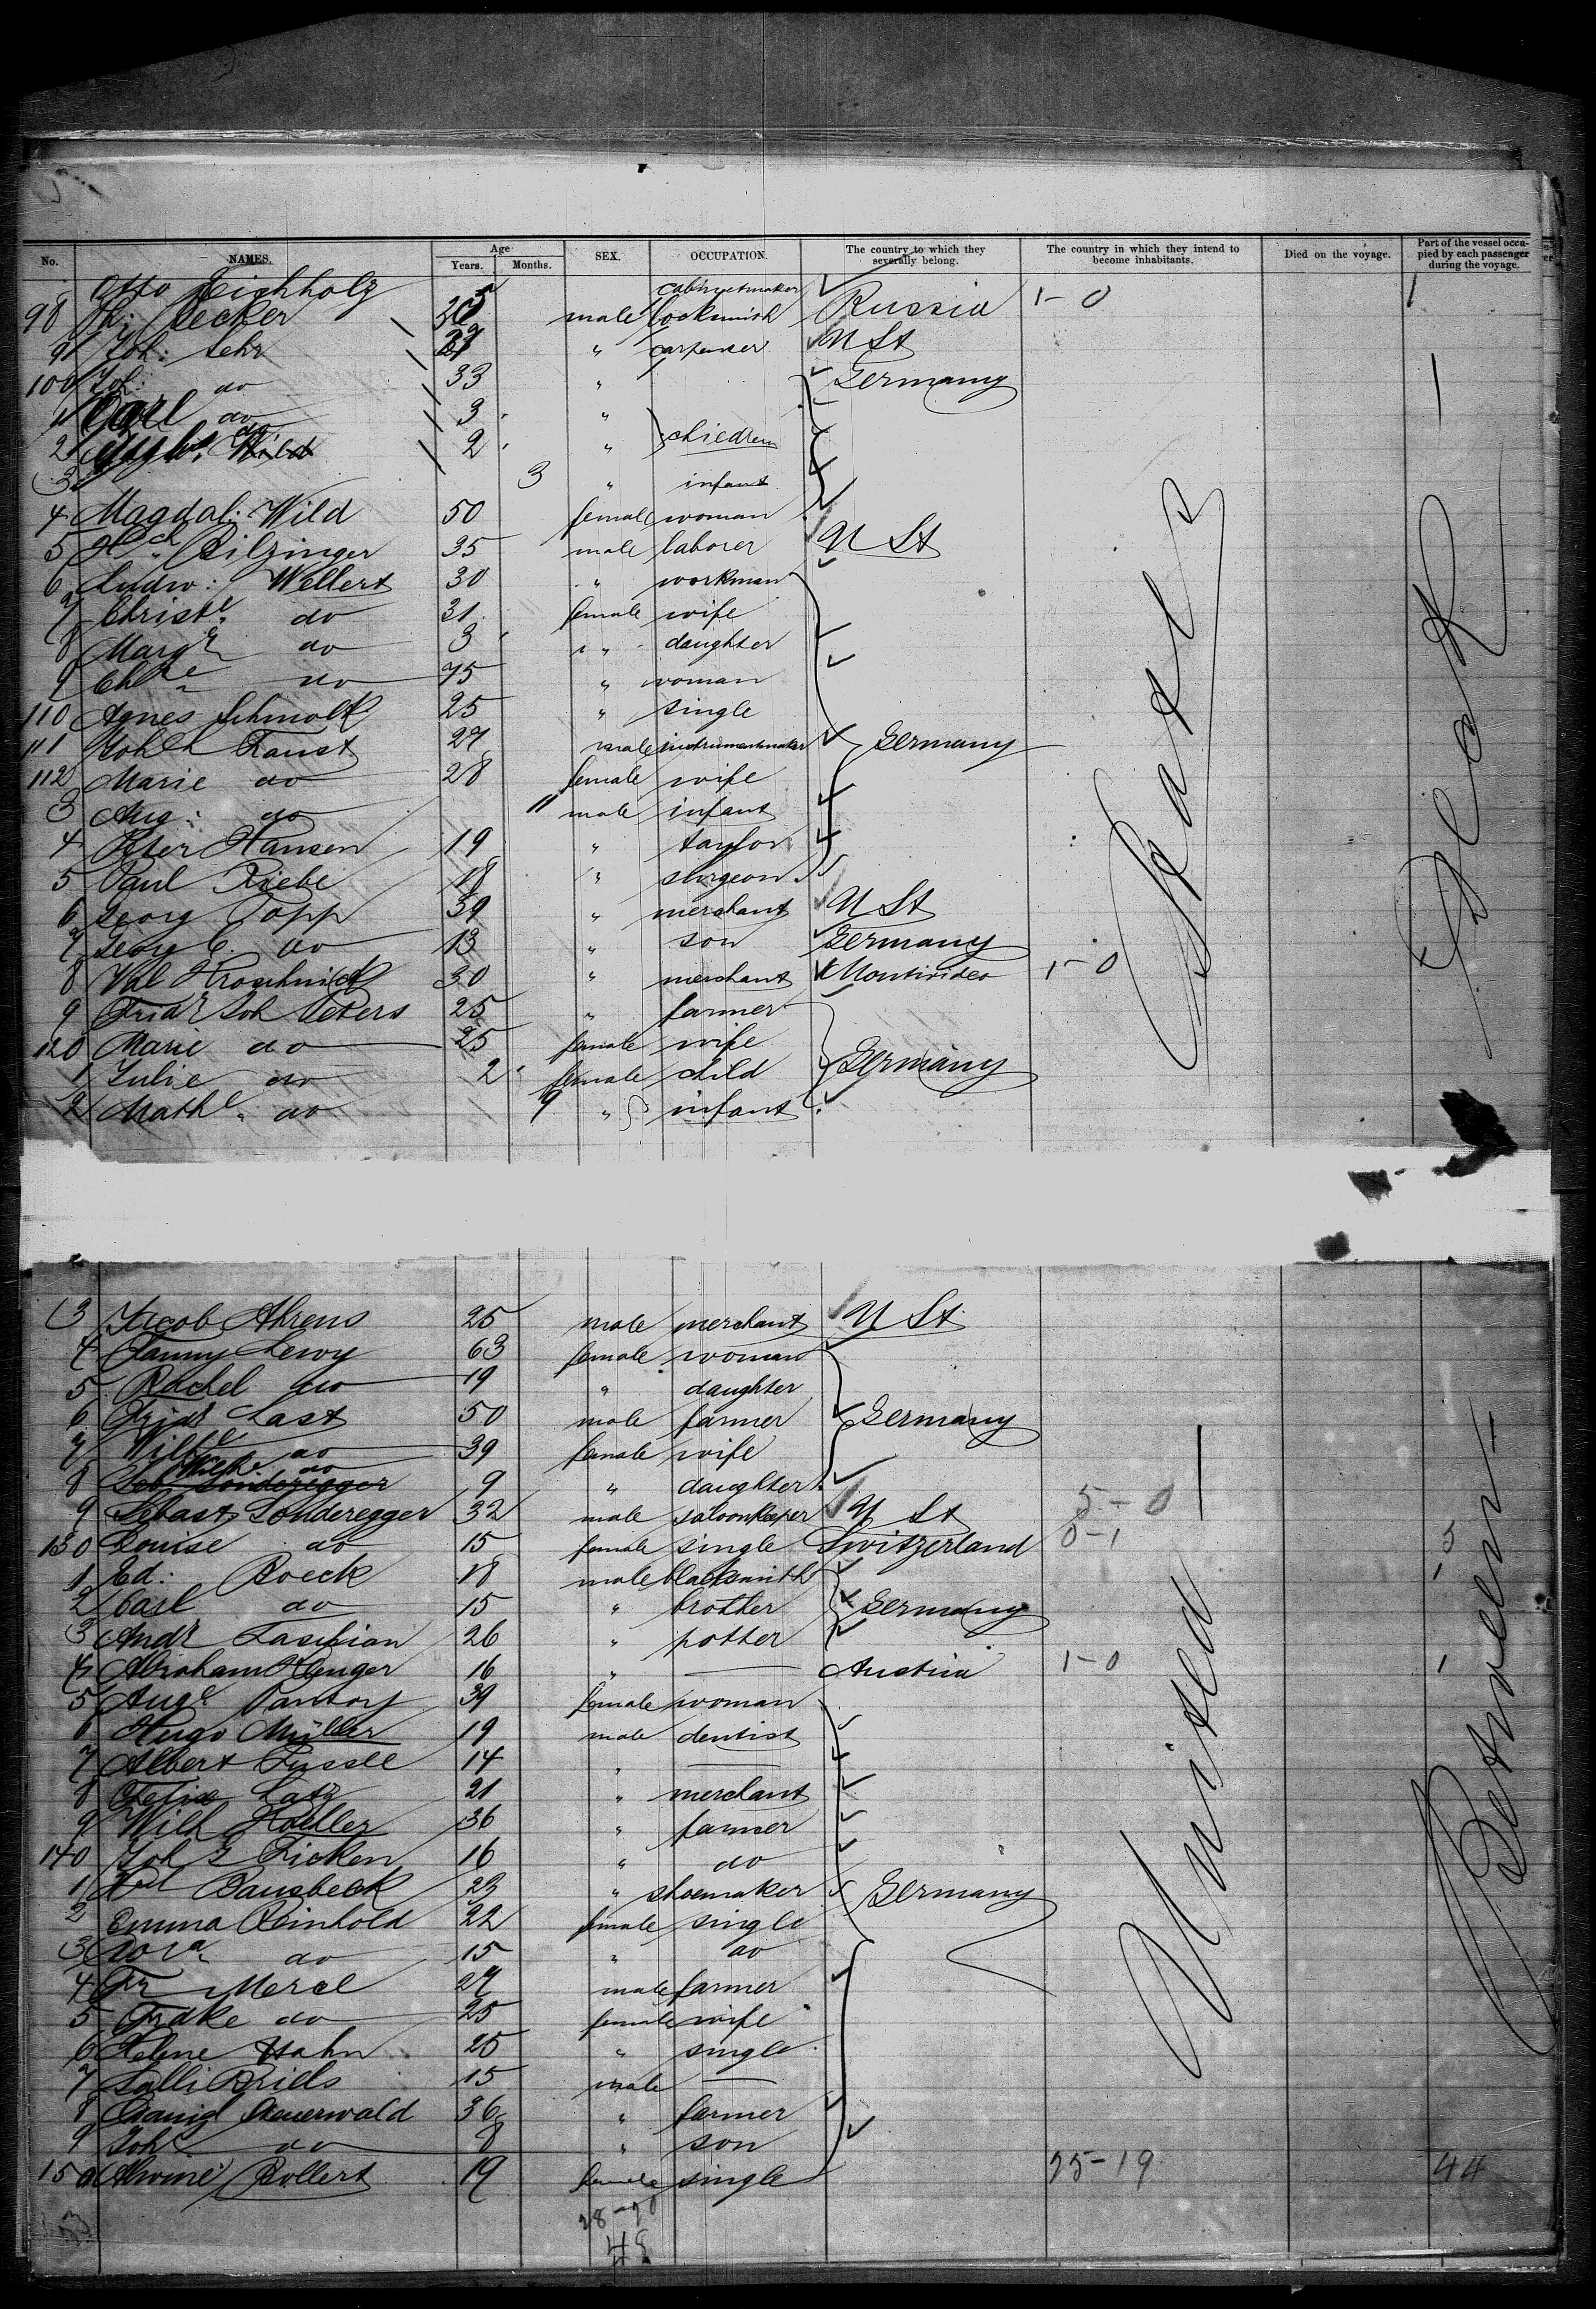 No. NAMES. Age Years. Months. SEX. OCCUPATION. The country to which they severally belong. The country in which they intend to become inhabitants. Died on the voyage. Part of the vessel occupied by each passenger during the voyage.
Otto Eichholz cabinetmaker
98 Becker male locksmith Russia 1-0 1
Joh: Fehr " carpenter U St
100 Joh: do 33 " Germany
1 Carl do 3 "
2 do 2 " children
3 3 " infant
4 Magdal: Wild 50 female woman
5 Hch Pilzinger 35 male laborer U St
6 Ludw: Wellert 30 " workman
7 Christe do 31 female wife
8 Margr do 3 " " daughter
9 do 75 " woman
110 Agnes Schmolk 25 " single
111 Faust 27 male instrumentmaker Germany
112 Marie do 28 female wife
3 Aug: do 11 male infant
4 Peter Hansen 19 " taylor
5 Paul Riebe 18 " surgeon
6 Georg Topp 39 " merchant U St
7 Georg C. do 13 " son Germany
8 30 " merchant Montivideo 1-0
9 Fridr Joh Peters 25 " farmer
120 Marie do 25 female wife
1 Julie do 2 female child Germany
2 Mathe do 9 " infant
States
Deck
3 Jacob Ahrens 25 male merchant U St
4 Fanny Lewy 63 female woman
5 Rachel do 19 " daughter
6 Fridr Last 50 male farmer Germany
7 Wilhe do 39 female wife
8 Wilhe do Seb. Sonderegger 9 " daughter
9 Sebast Sonderegger 32 male saloonkeeper U St 5-0
130 Louise do 15 female single Switzerland 0-1 5
1 Ed: Boeck 18 male blacksmith 1
2 Carl do 15 " brother Germany
3 Andr 26 " potter
4 Abraham 16 " Austria 1-0 1
5 Auge 39 female woman
6 Hugo Müller 19 male dentist
7 Albert 14 "
8 Felix Latz 21 " merchant
9 Wilh Hoeller 36 " farmer
140 Joh G Ficken 16 " do
1 Bausbeck 23 " shoemaker Germany
2 Emma Reinhold 22 female single
3 Dora do 15 " do
4 Fr Merel 27 male farmer
5 Frdke do 25 female wife
6 Helene Hahn 25 " single
7 Salli Briels 15 male
8 Daniel Auerwald 36 " farmer
9 Joh do 8 " son
150 Alwine Bollert 19 female single 25-19 44
28-20
48
United
Between